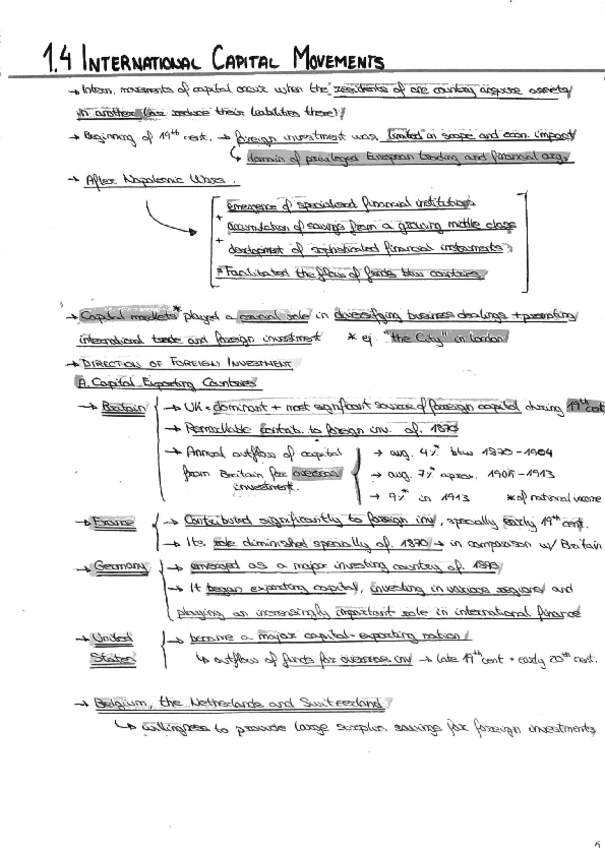 1.4 INTERNATIONAL CAPITAL MOVEMENTS
→ Intern. movements of capital occur when the residents of one country acquire assets
in another (or reduce their liabilities there)
→ Beginning of 19th cent. → foreign investment was limited in scope and econ. impact
↳ domain of privileged European trading and financial org.
→ After Napoleonic Wars.
emergence of specialised financial institutions
+ accumulation of savings from a growing middle class
+ development of sophisticated financial instruments
* Facilitated the flow of funds btw countries
→ Capital markets* played a crucial role in diversifying business dealings + promoting
international trade and foreign investment * ej. "the City" in London
→ DIRECTION OF FOREIGN INVESTMENT
A. Capital Exporting Countries
→ Britain → UK = dominant + most significant source of foreign capital during 19th cent
→ Remarkable contrib. to foreign inv. af. 1870
→ Annual outflow of capital → avg. 4%* btw 1870-1904
from Britain for overseas → avg. 7%* aprox. 1905-1913
investment. → 9%* in 1913 * of national income
→ France → Contributed significantly to foreign inv, specially early 19th cent.
→ Its role diminished specially af. 1870 → in comparison w/ Britain
→ Germany → emerged as a major investing country af. 1870
→ It began exporting capital, investing in various regions and
playing an increasingly important role in international finance
→ United → become a major capital-exporting nation
States ↳ outflow of funds for overseas inv → late 19th cent - early 20th cent.
→ Belgium, the Netherlands and Switzerland
↳ willingness to provide large surplus savings for foreign investments